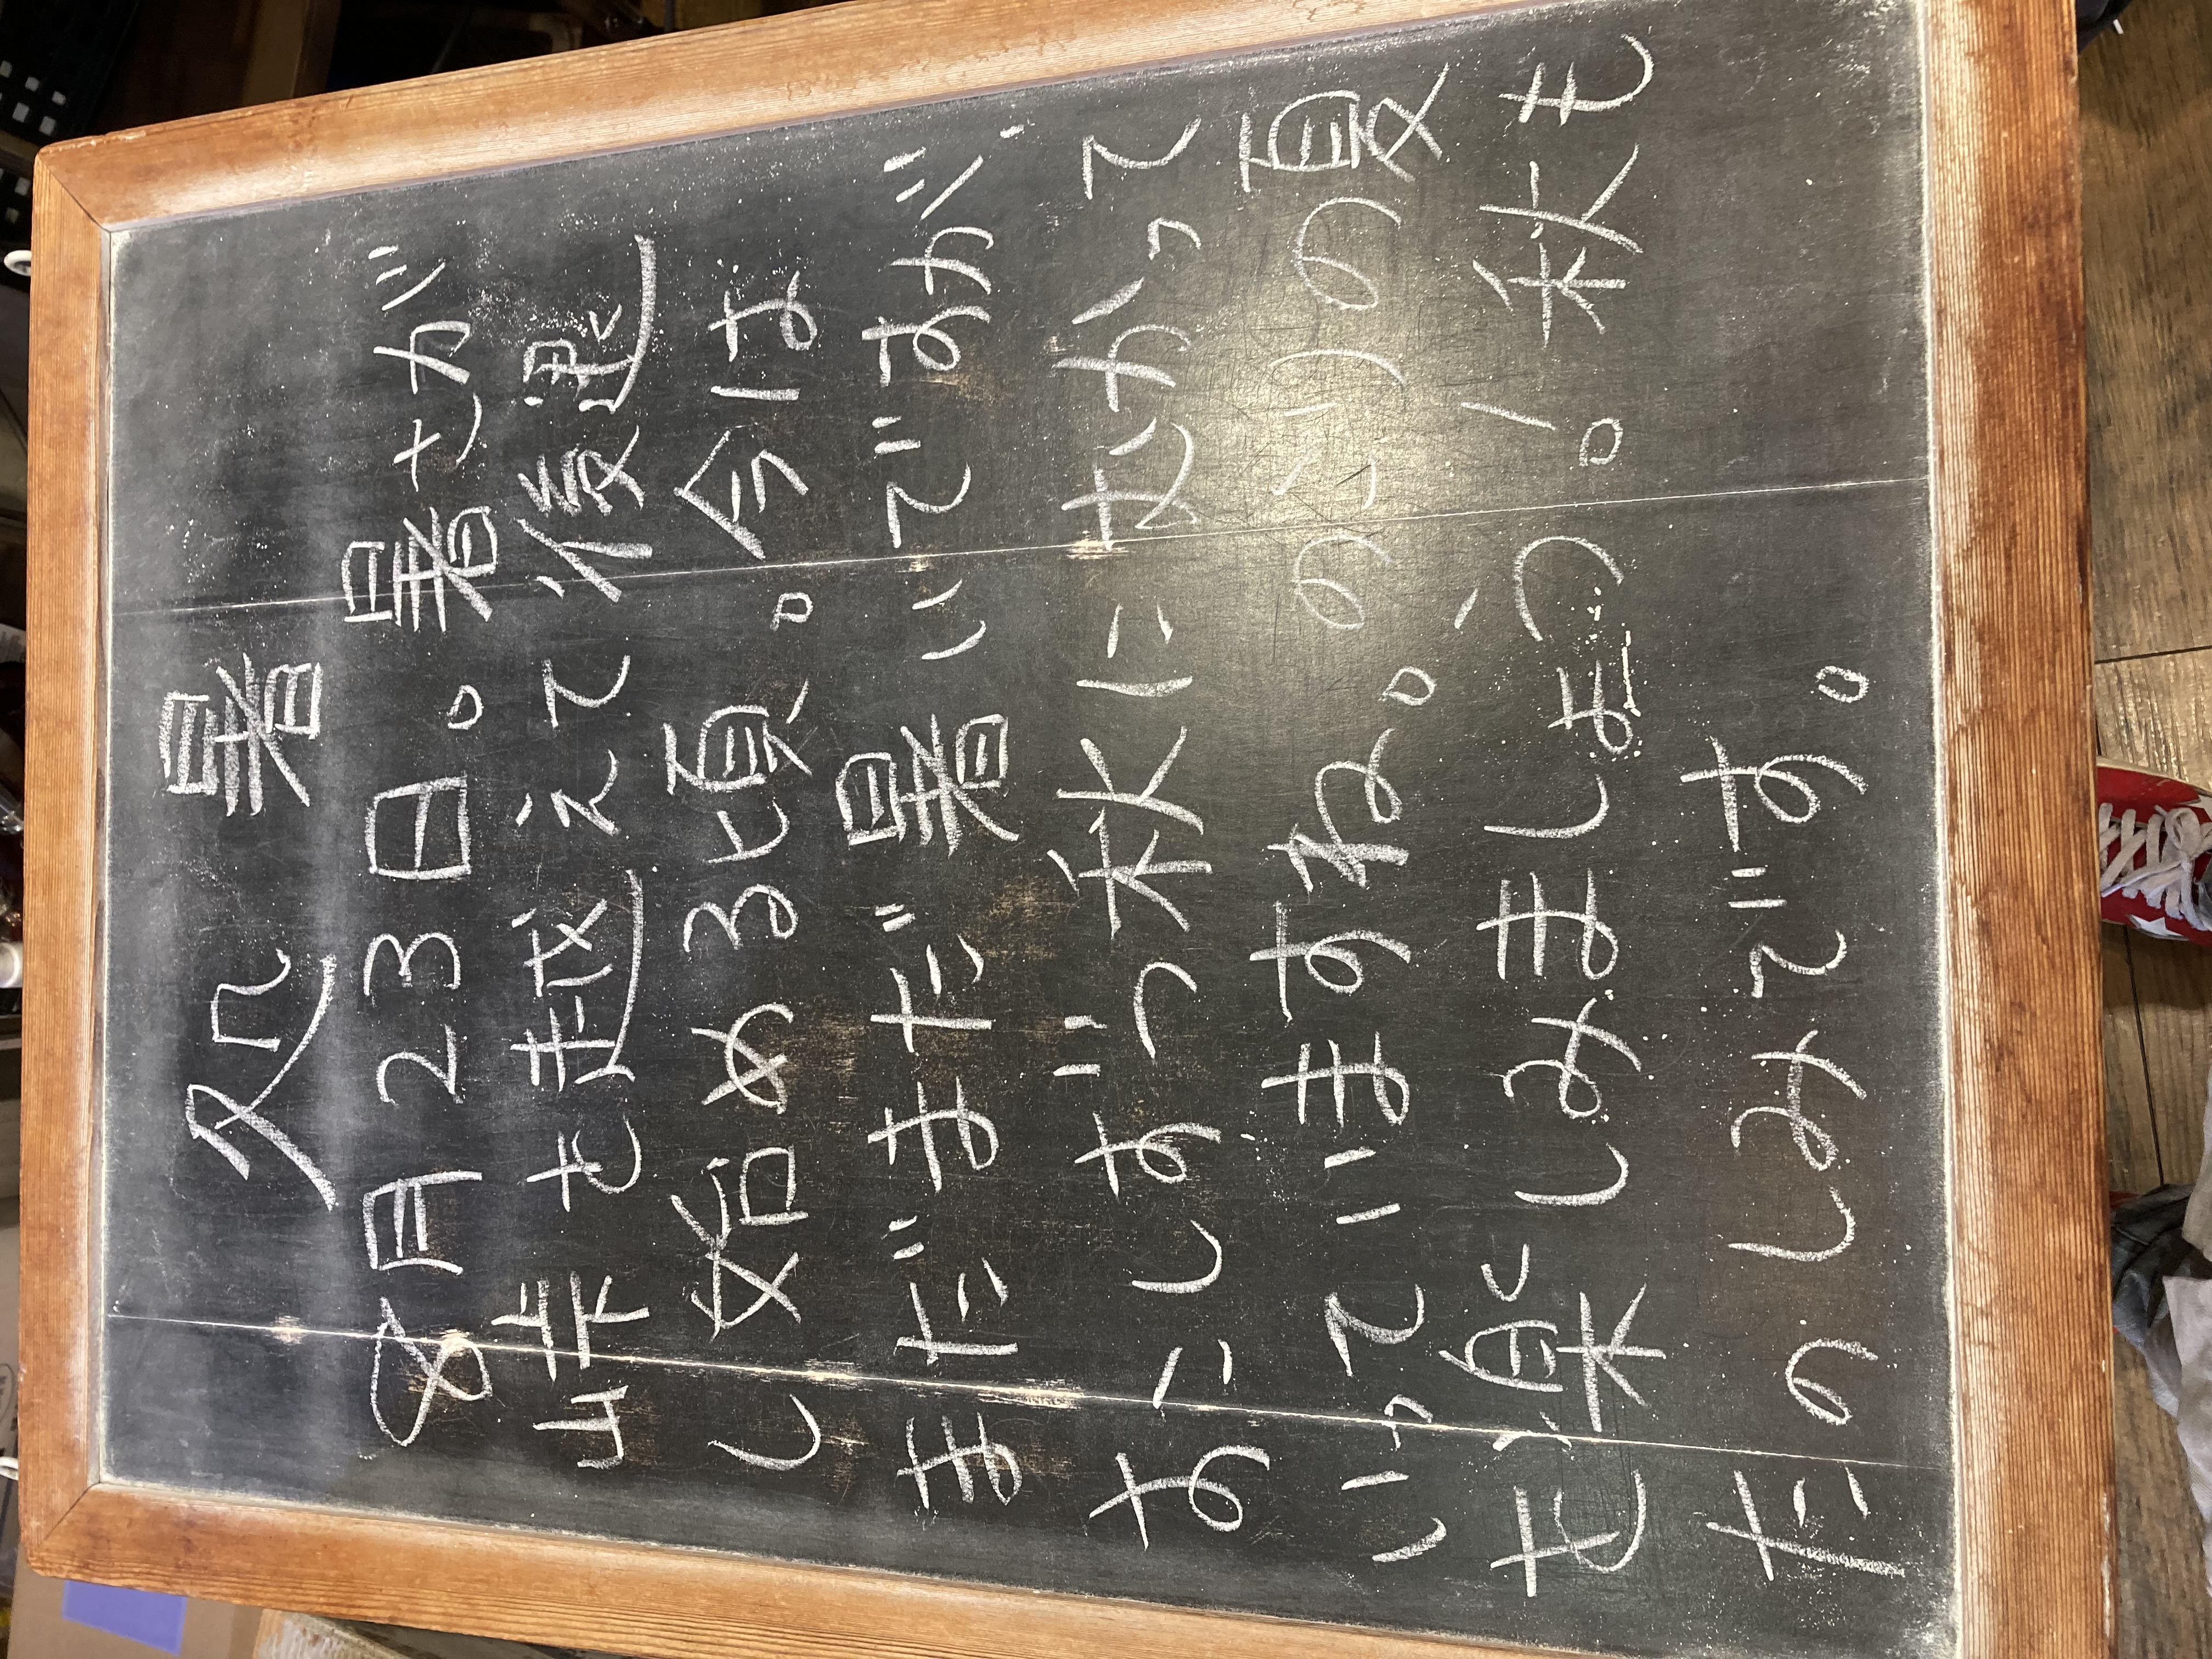 処暑
8月23日。暑さが
峠を越えて後退
し始める頃。今は
まだまだ暑いですが
すこしずつ秋にむかって
いっていますね。のこりの夏
も楽しみましょう！秋も
たのしみです。